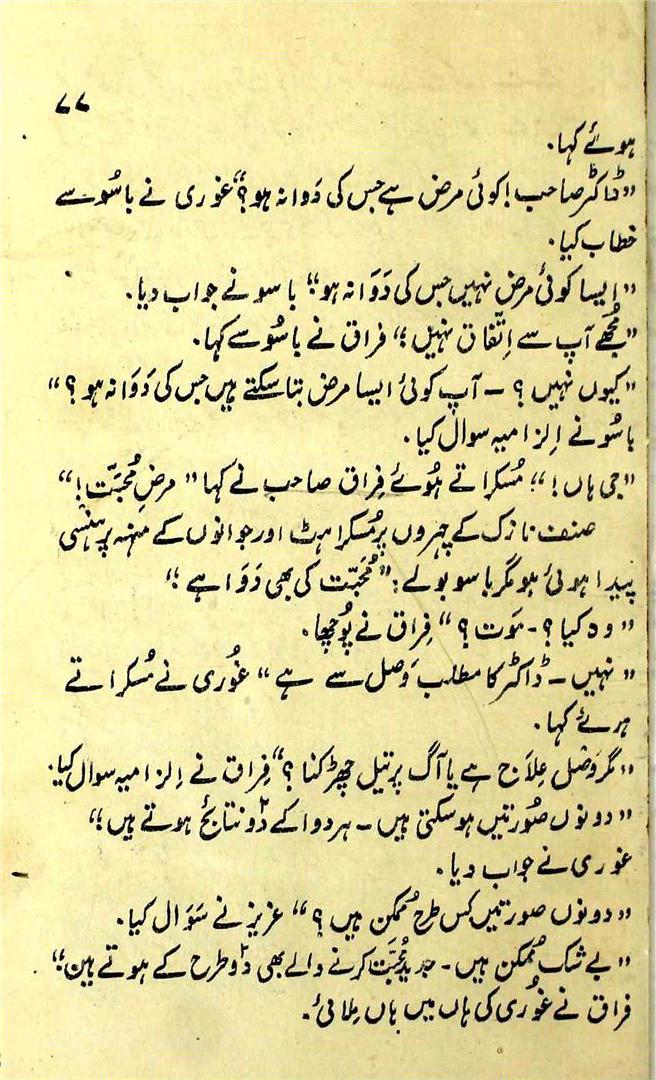 ۷۷
ہوئے کہا۔
"ڈاکٹر صاحب! کوئی مرض ہے جس کی دَوا نہ ہو؟" غوری نے باسُو سے
خطاب کیا۔
"ایسا کوئی مرض نہیں جس کی دَوَا نہ ہو؛" باسو نے جواب دیا۔
"مُجھے آپ سے اِتّفاق نہیں؛" فراق نے باسُو سے کہا۔
"کیوں نہیں؟ – آپ کوئی ایسا مرض بتا سکتے ہیں جس کی دَوَا نہ ہو؟"
باسُو نے اِلزامیہ سوال کیا۔
"جی ہاں!؛" مُسکراتے ہُوئے فِراق صاحب نے کہا "مرضِ مُحبّت!"
صنف نازک کے چہروں پر مُسکراہٹ اور جوانوں کے منہہ پر ہنسی
پیدا ہوئی ہو مگر باسو بولے: "مُحَبّت کی بھی دَوَا ہے؛"
"وہ کیا؟ - مَوت؟" فِراق نے پُوچھا۔
"نہیں – ڈاکٹر کا مطلب وَصل سے ہے" غُوری نے مُسکراتے
ہرئے کہا۔
"مگر وَصْل عِلاج ہے یا آگ پر تیل چھِڑکنا؟" فِراق نے اِلزامیہ سوال کیا۔
"دونوں صُورتیں ہو سکتی ہیں – ہر دوا کے دو نتایٔج ہوتے ہیں؛"
غوری نے جواب دیا۔
"دونوں صورتیں کس طرح مُمکن ہیں؟" عزیز نے سَوَال کیا۔
"بے شک مُمکن ہیں - مُحبّت کرنے والے بھی دو طرح کے ہوتے ہین؛"
فراق نے غوُری کی ہاں میں ہاں مِلائی۔